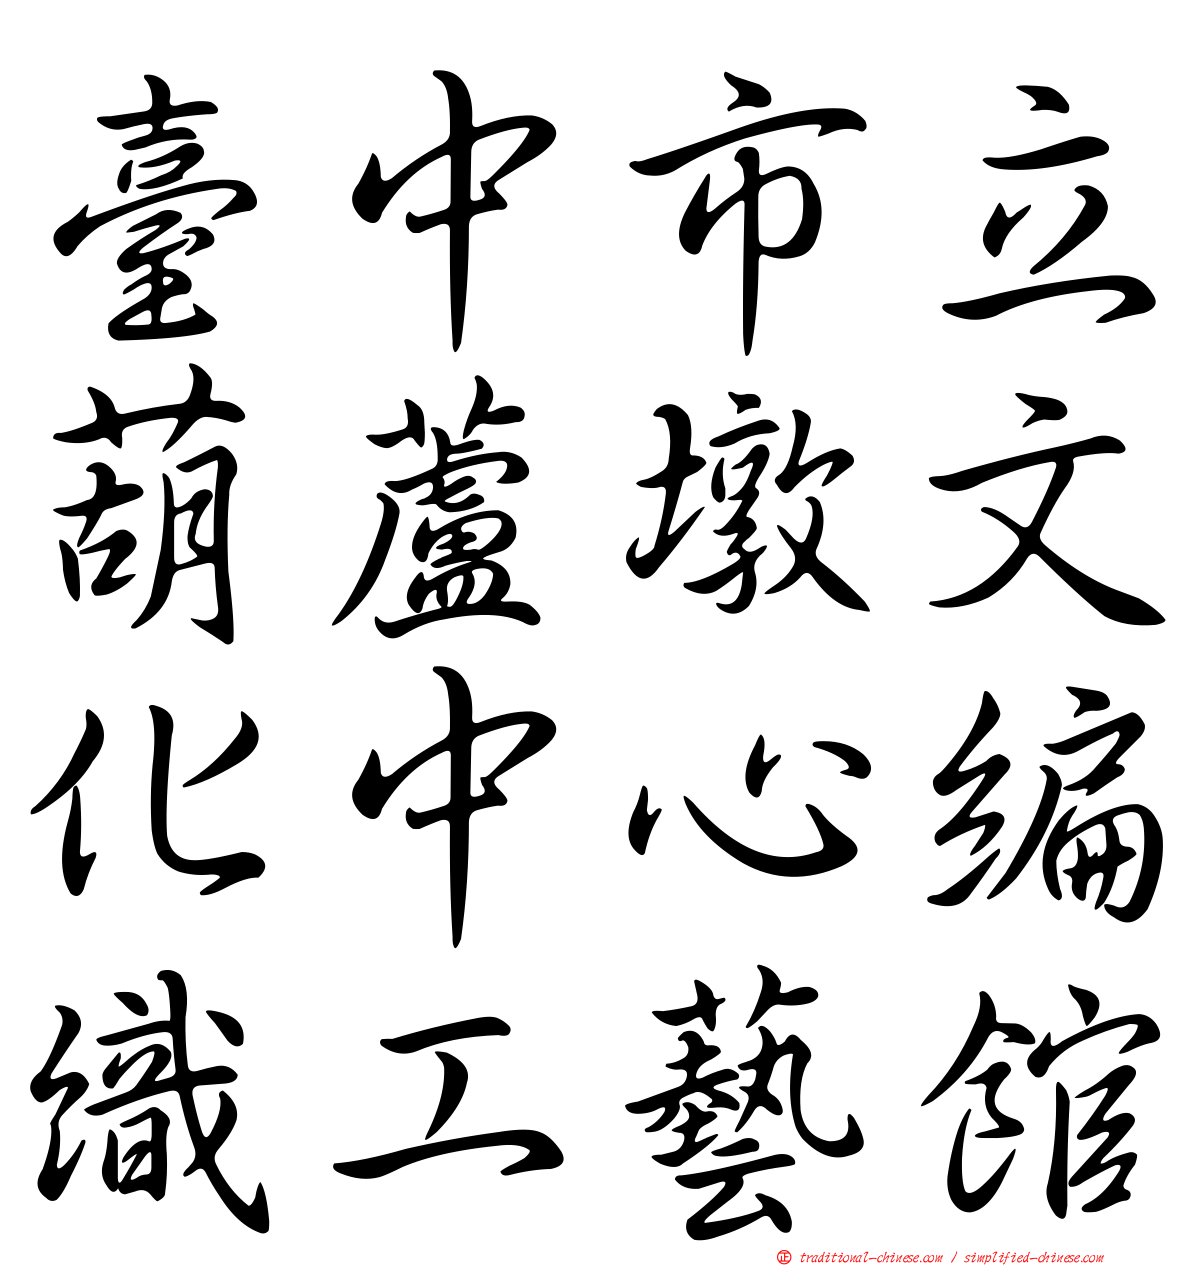 臺中市立
葫蘆墩文
化中心編
織工藝館
正 traditional-chinese.com / simplified-chinese.com